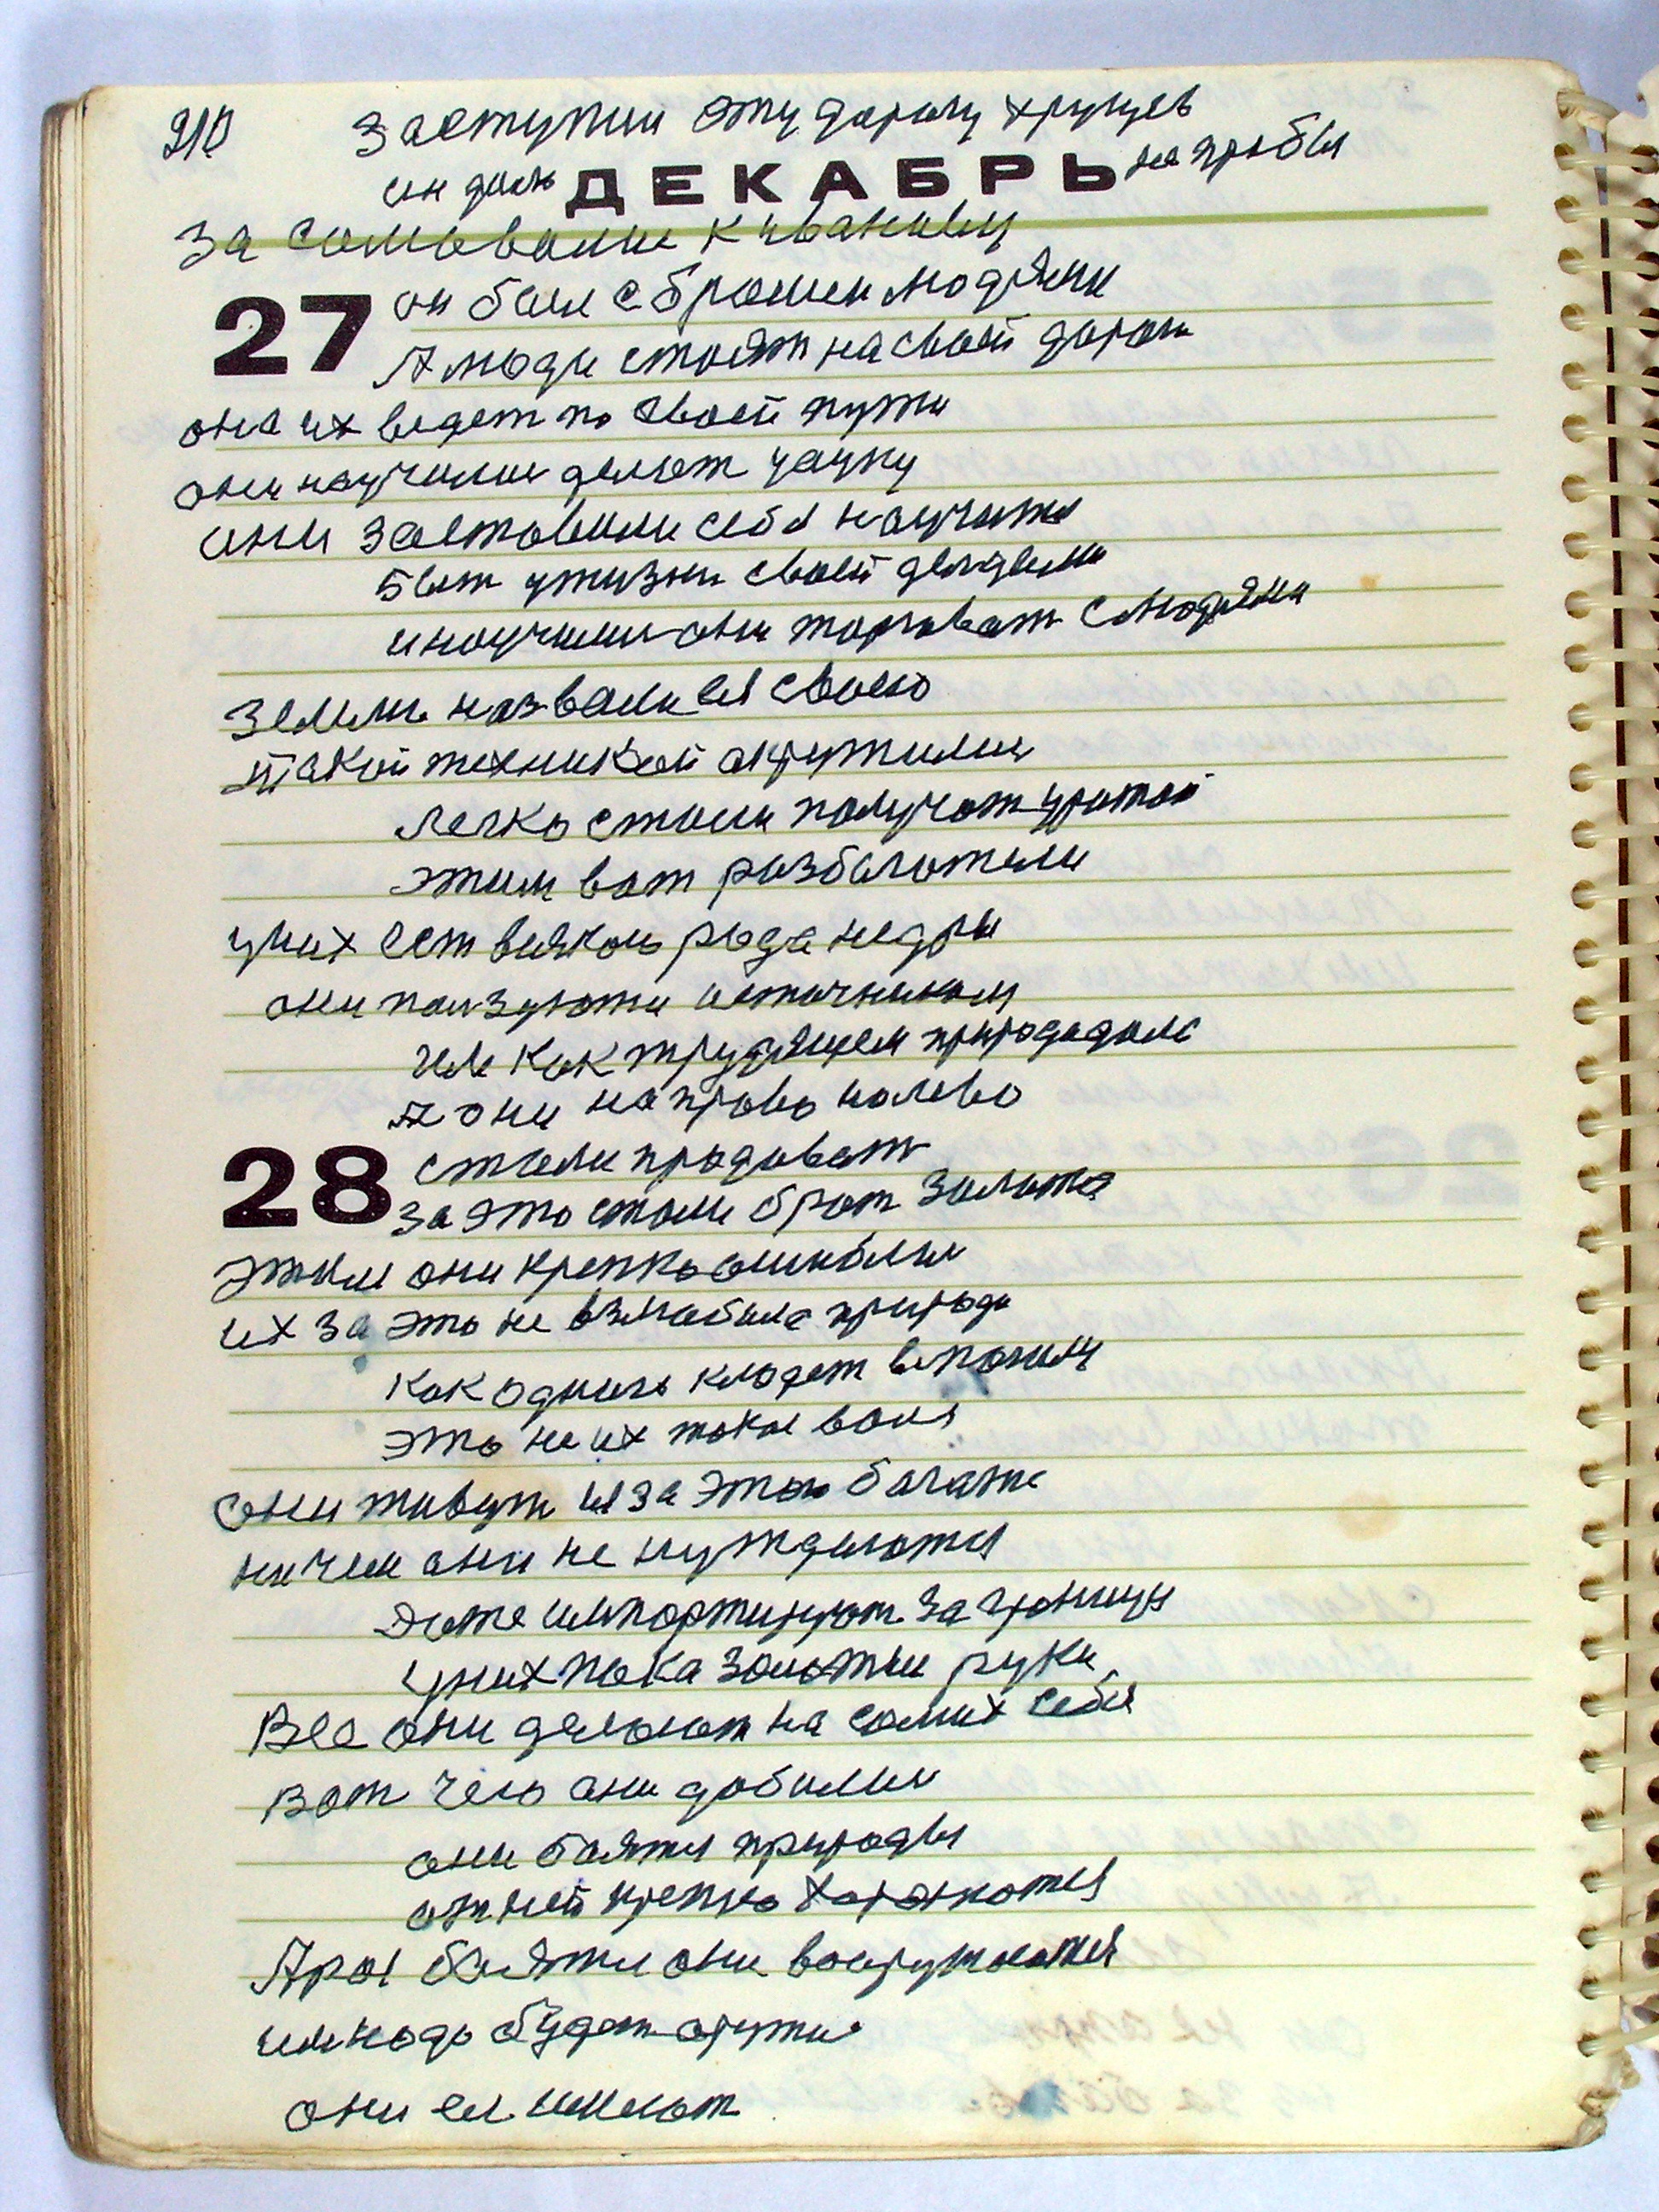 210 Заступил эту дорогу хрущев
ин дил ДЕКАБРЬ не прибыл
За сомовалие к иванову
27 он был сброшен людями
А люди стоят на своей дороги
она их ведет по своей пути
они научились делат науку
они заставили себя научится
быт у жизни своей
и научились они торговат с людями
Землю назвали ея своею
и такой техникой окружились
легко стали получат урожай
этим вот разбогатели
у них ест всякого рода недры
они ползуются источником
им как трудящем природа дала
А они на право налево
28 стали продават
за это стали брат золото
этим они крепко ошиблис
их за это не взлюбила природа
как одного кладет в могилу
это не их такая воля
они живут из за этого багатже
ни чем они не нуждаются
даже импортируют за границы
у них пока золотыи руки
Все они делают на самих себя
вот чего они добились
они боятся природы
от ней крепко хоронются
А раз боятся они вооружаются
им надо будет оружие
они ея имеют